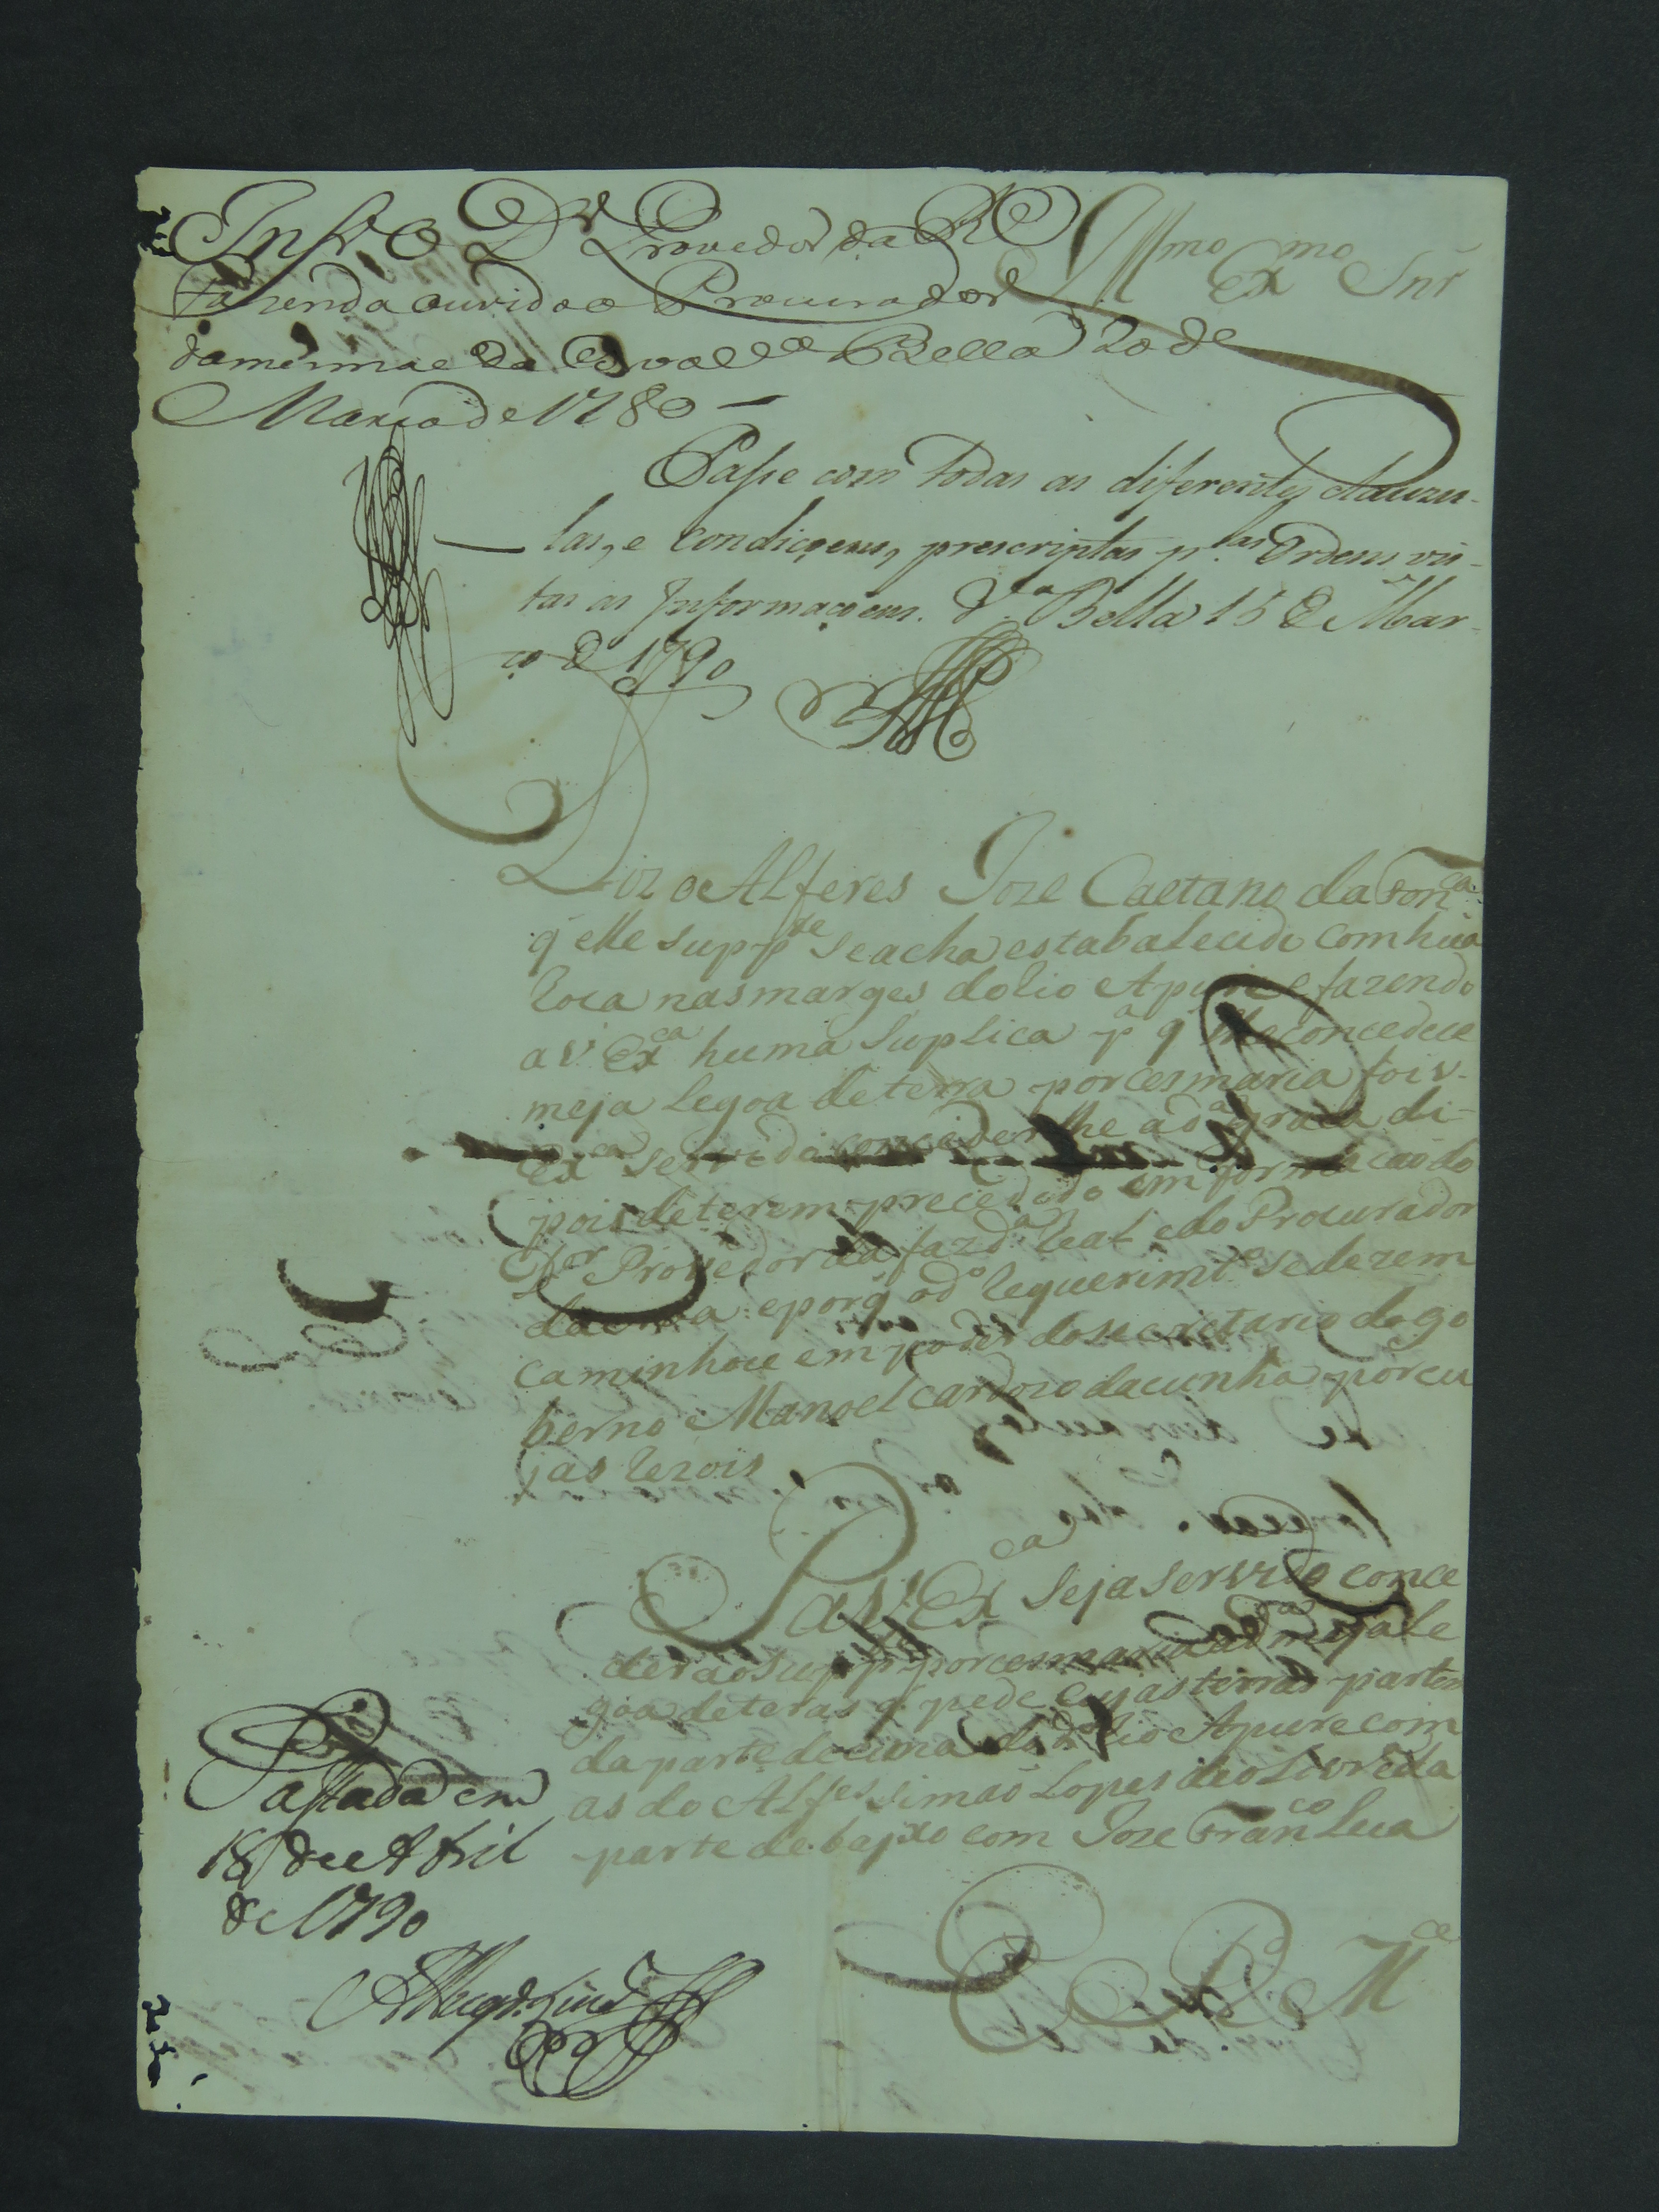 Infr.e o Dr. Provedor da Rl.
Fazenda ouvido o Procurador
da mesma e da Coroa Bella 20 de
Março de 1780
Illmo Exmo Snr
Passe com todas as diferentes clauzu-
las, e condiçoens, prescriptas p.las Ordens vis-
tas as Informaçoens. V.a Bella 15 de Mar-
ço de 1790
Diz o Alferes Joze Caetano da Fonca
q elle suppte se acha estabalecido com hũa
roça nas marges do rio Apure e fazendo
a V. Exca huma suplica pa q lhe concedece
meja legoa de terra por cesmaria foi V.
Exca servido conceder lhe a da graça di-
pois de terem precedido emformação do
Dor Provedor da fazda real e do Procurador
da mesma e porq o do requerimto se dezem
caminhou em poder do secretario do go
berno Manoel cardozo da cunha por cu
jas rezois
P a V. Exca seja servido conce
der ao suppte por cesmaria a da meja le
goa de teras q pede cujas terras partem
da parte de cima do do rio Apure com
as do Alfes Simaõ Lopes de oLivra e da
parte de bajxo com Joze Franco Leca
E R Mce
Passada em
18 de Abril
de 1790